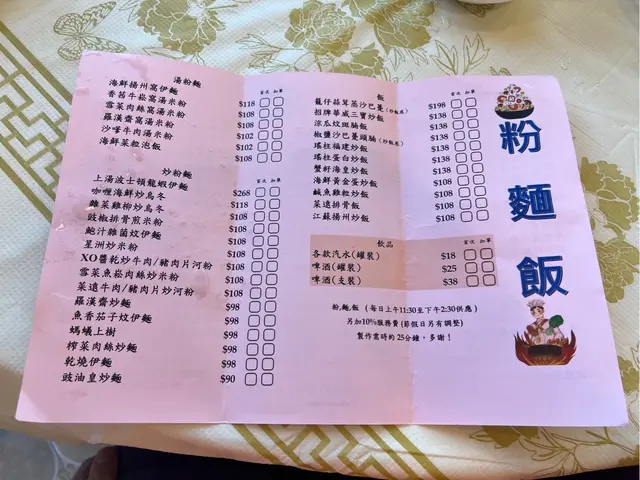 湯粉麵
堂次 加單
海鮮揚州窩伊麵 $118
香茜牛崧窩湯米粉 $108
雪菜肉絲窩湯米粉 $108
羅漢齋窩湯米粉 $102
沙嗲牛肉湯米粉 $102
海鮮菜粒泡飯 $108
炒粉麵
堂次 加單
上湯波士頓龍蝦伊麵 $268
咖喱海鮮炒烏冬 $118
雜菜雞柳炒烏冬 $108
豉椒排骨煎米粉 $108
鮑汁雜菌炆伊麵 $108
星洲炒米粉 $108
XO醬乾炒牛肉/豬肉片河粉 $108
雪菜魚崧肉絲炒米粉 $108
菜遠牛肉/豬肉片炒河粉 $108
羅漢齋炒麵 $98
魚香茄子炆伊麵 $98
螞蟻上樹 $98
榨菜肉絲炒麵 $98
乾燒伊麵 $98
豉油皇炒麵 $90
飯
籠仔蒜茸蒸沙巴蔓(炒飯底) $198
招牌華威三寶炒飯 $138
涼瓜炆斑腩飯 $138
椒鹽沙巴蔓頭腩(炒飯底) $138
瑤柱福建炒飯 $138
瑤柱蛋白炒飯 $138
蟹籽海皇炒飯 $138
海鮮黃金蛋炒飯 $108
鹹魚雞粒炒飯 $108
菜遠排骨飯 $108
江蘇揚州炒飯 $108
飲品
各款汽水(罐裝) $18
啤酒(罐裝) $25
啤酒(支裝) $38
粉,麵,飯 (每日上午11:30至下午2:30供應)
另加10%服務費(節假日另有調整)
製作需時約25分鐘,多謝!
粉
麵
飯